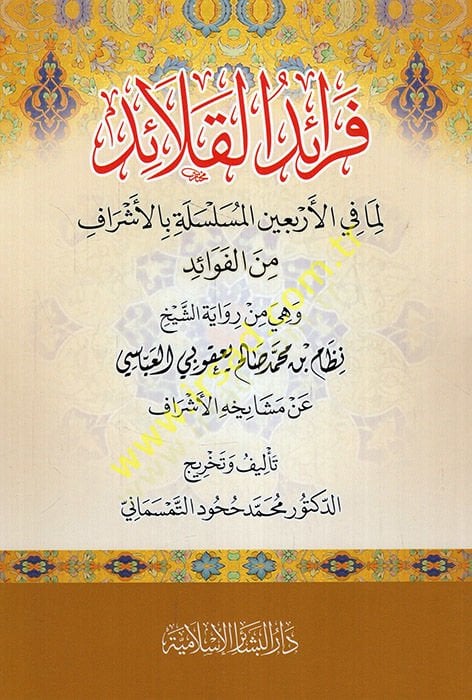 فَرَائِدُ القَلَائِد
لِمَا فِي الأَرْبَعِينَ المُسَلْسَلَةِ بِالأَشْرَافِ
مِنَ الفَوَائِدِ
وَهِيَ مِنْ رِوَايَةِ الشَّيْخِ
نظام بن محمد صالح يعقوبي العباسي
عَنْ مَشَايِخِهِ الأَشْرَافِ
تَأْلِيفُ وَتَخْرِيج
الدّكتُور مُحَمَّد حُحُود التَّمْسَمَانِيّ
دَارُ البَشَائِرِ الإِسْلَامِيَّة